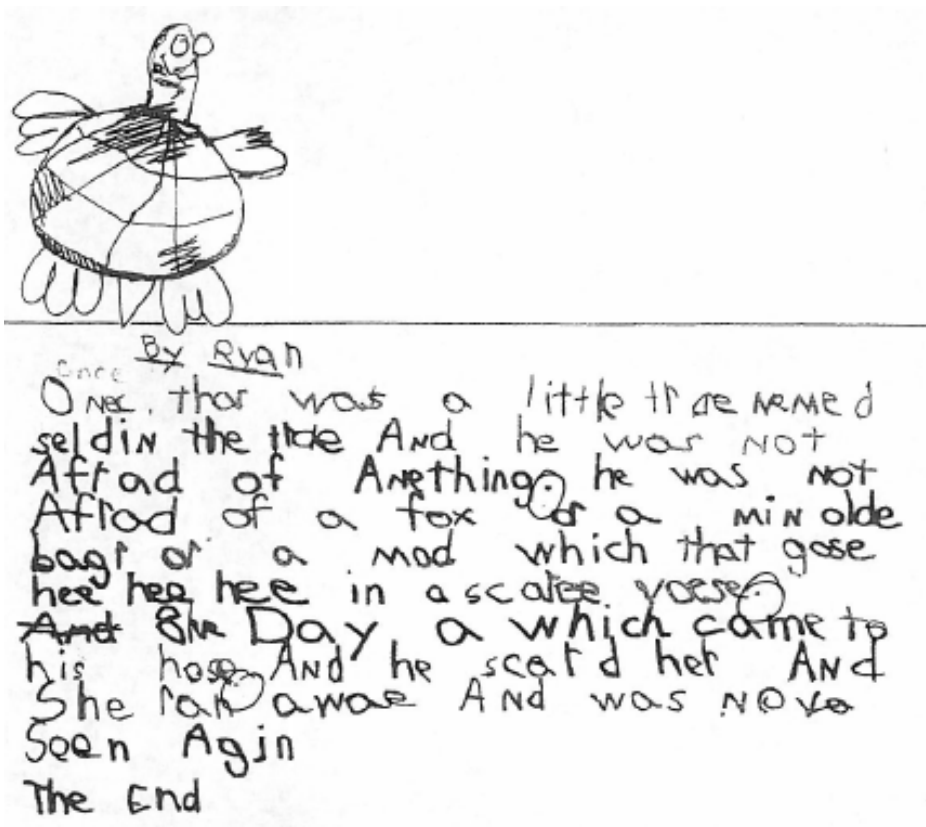 By Ryan
Once
Onec. thar was a little trtle NeMed
seldin the trtle And he was Not
Afrad of Anething. he was Not
Afrad of a fox or a miN olde
bagr or a mad which that gose
hee hee hee in a scaree voese.
And One Day a which came to
his hose. And he scard her And
She ran awae And was Nove
Seen Agin
The End